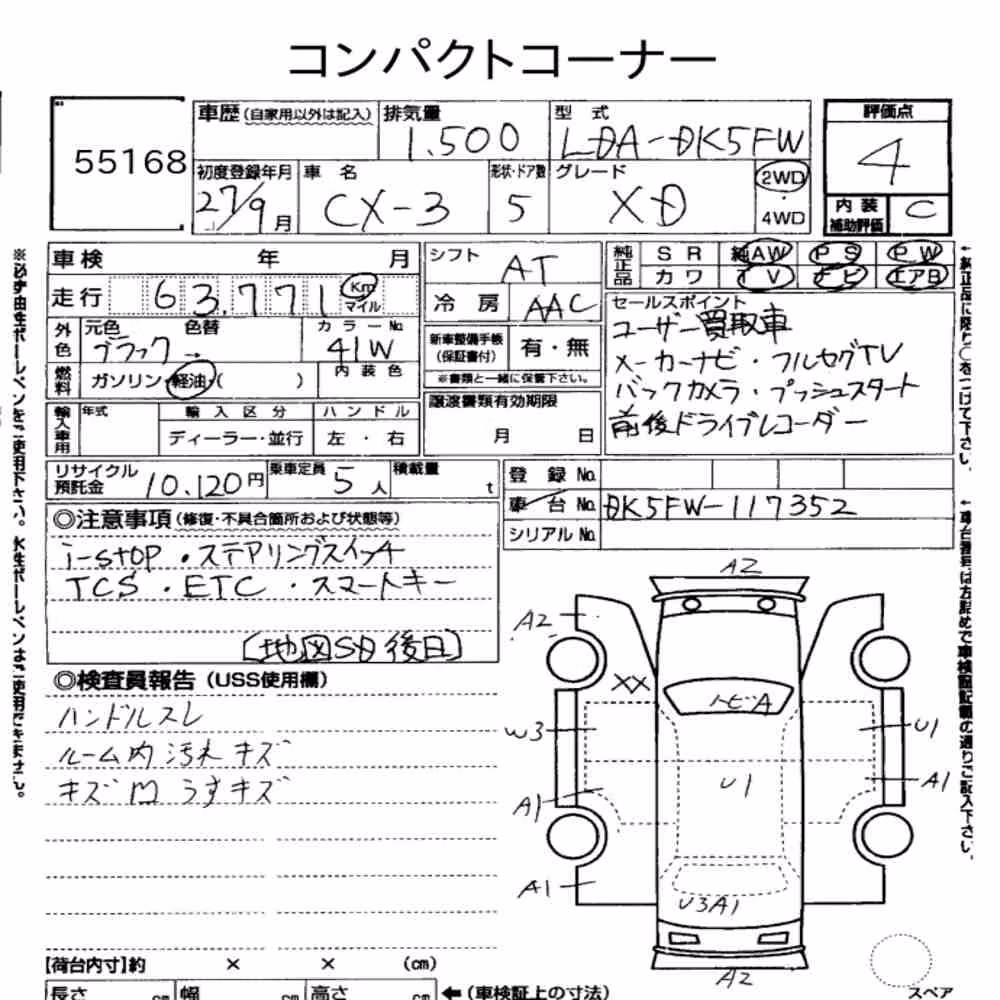 コンパクトコーナー
55168
車歴 (自家用以外は記入) 排気量 型式
1.500 LDA-DK5FW
初度登録年月 車名 形状・ドア数 グレード
27/9月 CX-3 5 XD
2WD
・
4WD
評価点
4
内装
補助評価
C
車検 年 月
走行 63.771 Km
マイル
外色 元色 色替 カラーNo.
ブラック → 41W
燃料 ガソリン・軽油・( ) 内装色
輸入車用 年式 輸入区分 ハンドル
ディーラー・並行 左・右
シフト AT
冷房 AAC
新車整備手帳
(保証書付) 有・無
※書類と一緒に保管下さい。
譲渡書類有効期限
月 日
純正品 SR 純AW PS PW
カワ TV ナビ エアB
セールスポイント
ユーザー買取車
メーカーナビ・フルセグTV
バックカメラ・プッシュスタート
前後ドライブレコーダー
リサイクル
預託金 10.120円 乗車定員 5人 積載量 t
登録No.
車台No. DK5FW-117352
シリアルNo.
◎注意事項 (修復・不具合箇所および状態等)
i-stop・ステアリングスイッチ
TCS・ETC・スマートキー
[地図SD後日]
◎検査員報告 (USS使用欄)
ハンドルスレ
ルーム内汚れキズ
キズ凹うすキズ
A2
A2
XX
トビA
W3
U1
U1
A1
A1
A1
U3A1
A2
スペア
【荷台内寸】約 × × (cm)
長さ cm 幅 cm 高さ cm ←(車検証上の寸法)
※必ず油性ボールペンをご使用下さい。水性ボールペンはご使用できません。
←純正品に限り○をつけて下さい。
←車台番号は方詰めで車検証記載の通りご記入下さい。